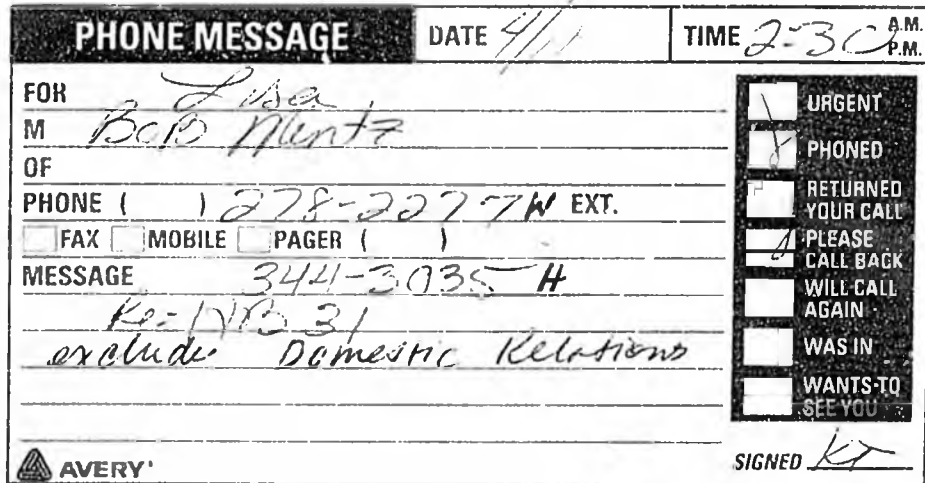 PHONE MESSAGE DATE 4/11 TIME 2-30 A.M. P.M.
FOR Lisa
M BOB Mintz
OF
PHONE ( ) 278-2277 W EXT.
FAX MOBILE PAGER ( )
MESSAGE 344-3035 H
Re= HB 31
exclude Domestic Relations
URGENT
PHONED
RETURNED YOUR CALL
PLEASE CALL BACK
WILL CALL AGAIN
WAS IN
WANTS TO SEE YOU
AVERY
SIGNED KT